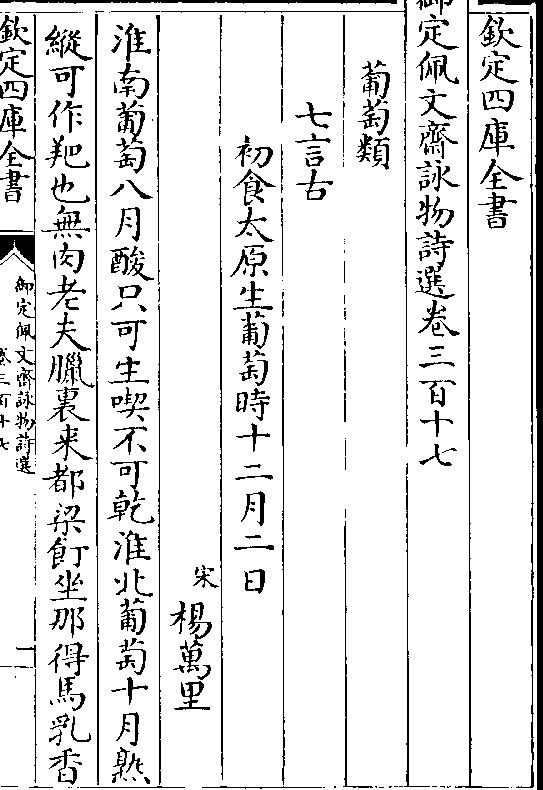 欽定四庫全書
御定佩文齋詠物詩選卷三百十七
葡萄類
七言古
初食太原生葡萄時十二月二日
宋楊萬里
淮南葡萄八月酸只可生喫不可乾淮北葡萄十月熟
縱可作羓也無肉老夫臘裏来都梁飣坐那得馬乳香
欽定四庫全書
御定佩文齋詠物詩選
卷三百十七
一